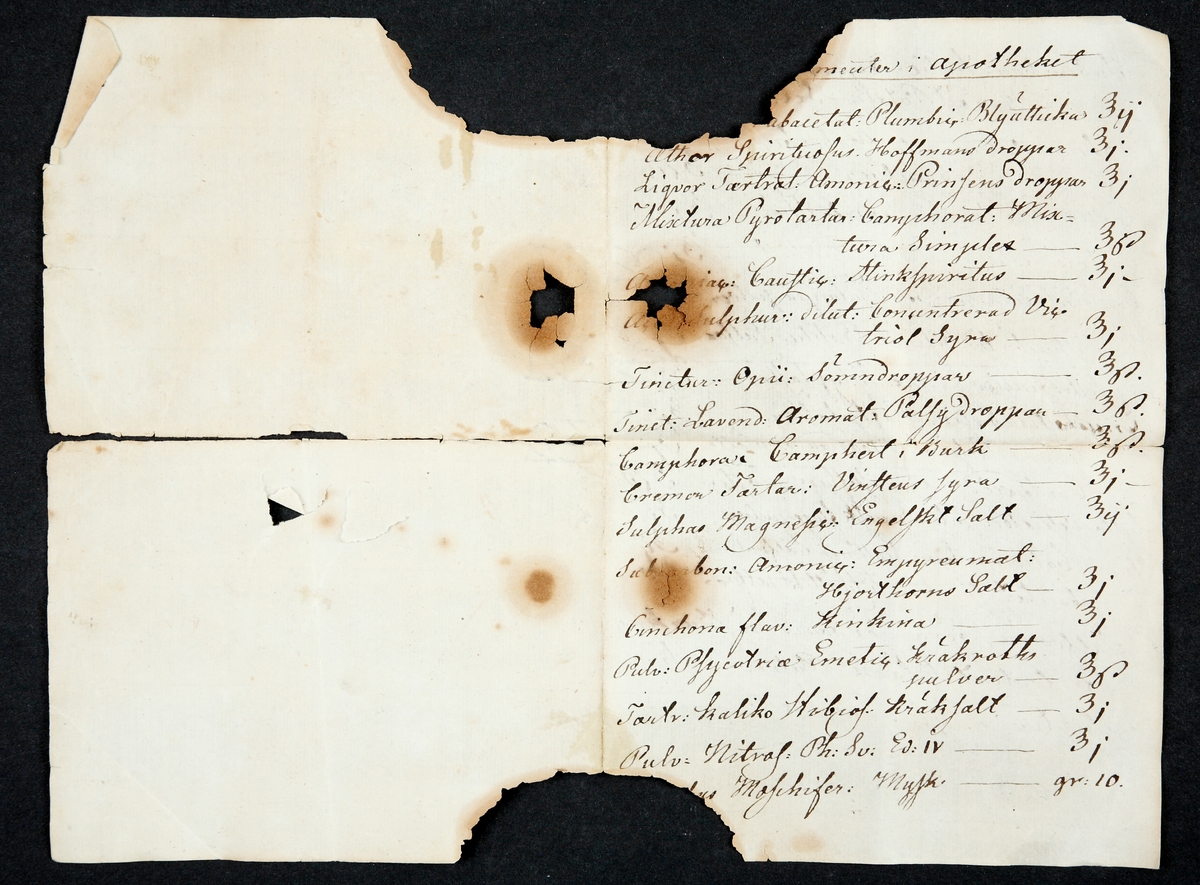 menter i Apotheket
abacetat: Plumbiq: Blÿätticka ʒij
Æther Spirituosus. Hoffmans droppar ʒj.
Liqvor Tartrat: Amoniq: Prinsens droppar ʒj
Mixtura Pyrotartar: Camphorat: Mix=
tura Simplex — ʒß
iaq: Caustiq: Stinkspiritus — ʒj -
Sulphur: dilut: Conuntrerad Vic
triol Syra — ʒj
Tinctur: Opii: Sömndroppar — ʒß.
Tinct: Lavend: Aromat: Palsy droppar — ʒß.
Camphora: Camphert i Burk — ʒß.
Cremor Tartar: Vinstens syra — ʒj -
Sulphas Magnesiq: Engelskt Salt — ʒij
Sub bon: Amoniq: Empyreumat:
Hjorthorns Salt — ʒj
Cinchona flav: Kinkina — ʒj
Pulv: Psycotriæ Emetiq Kräkroths
pulver — ʒß
Tartr: Kaliko Stibios: Kräksalt — ʒj
Pulv: Nitras: Ph: Sv: Ed: IV — ʒj
Moschifer: Mysk — gr: 10.